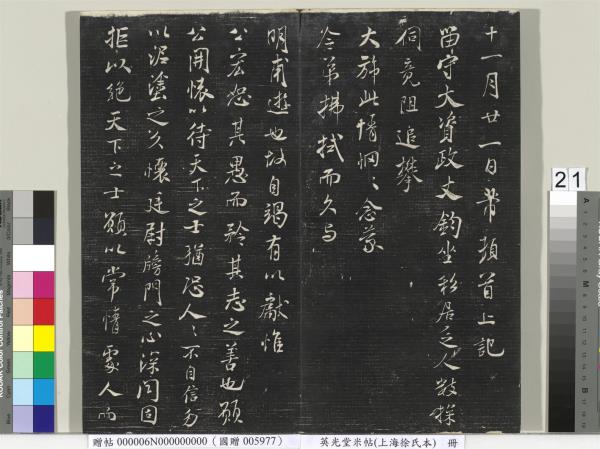 十一月廿一日芾頓首上記
留守大資政丈鈞坐彩居乏人數探
伺竟阻追攀
大旆此情惘〻念蒙
令弟拂拭而久與
明甫遊也故自竭有以獻惟
公宏恕其愚而矜其志之善也願
公開懷以待天下之士猶恐人〻不自信勿
以泥塗之久懷廷尉牓門之心深閉固
拒以絕天下之士願以常情處人而
21
贈帖 000006N000000000（國贈 005977） 英光堂米帖(上海徐氏本) 冊